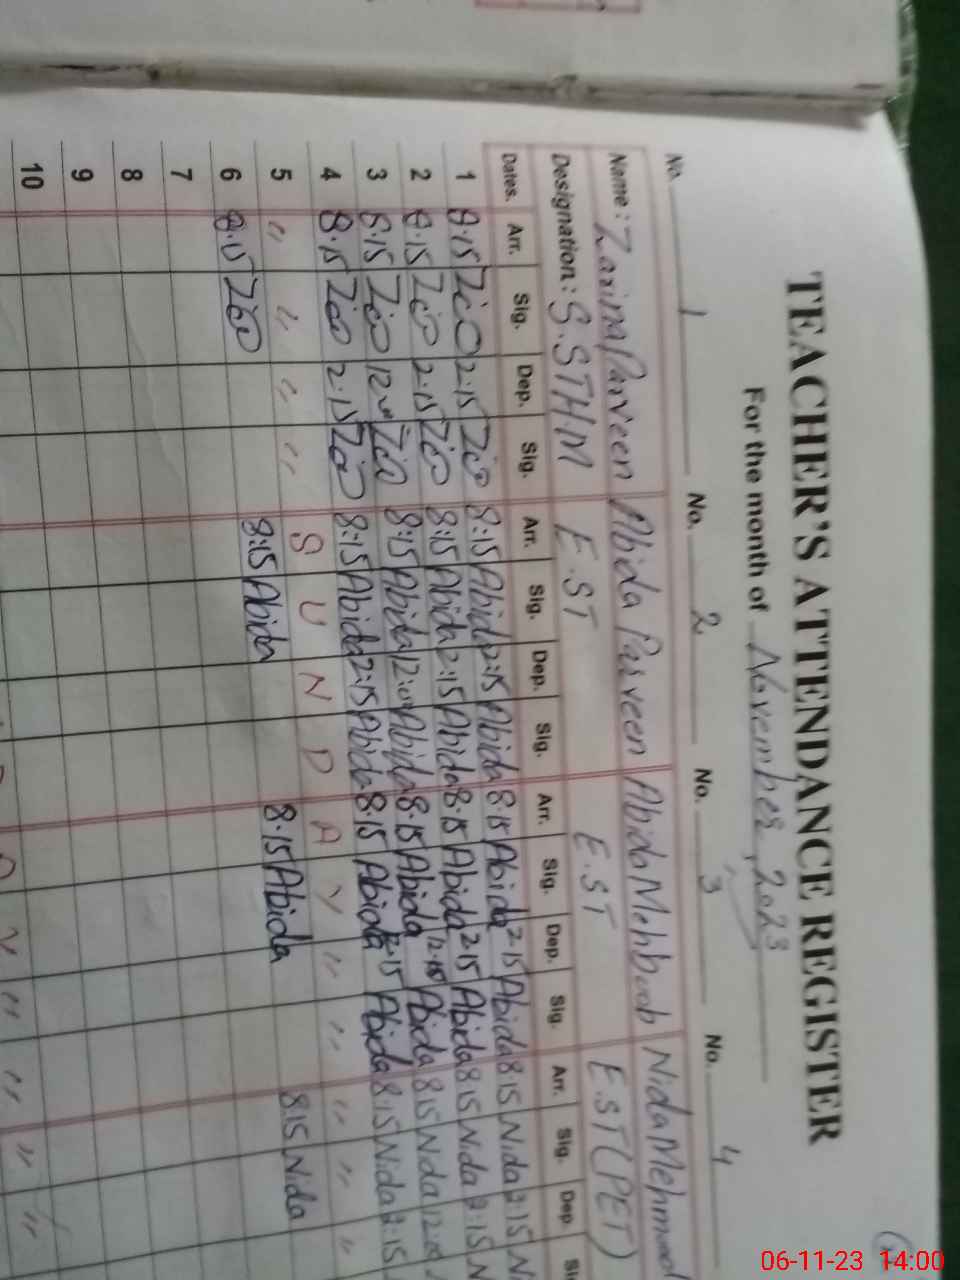 TEACHER'S ATTENDANCE REGISTER
For the month of November, 2023
No. 1 No. 2 No. 3 No. 4
Name: Zarina Parveen Abida Parveen Abida Mehboob Nida Mehmood
Designation: S.STH.M E.ST E.ST E.ST(PET)
Dates. Arr. Sig. Dep. Sig. Arr. Sig. Dep. Sig. Arr. Sig. Dep. Sig. Arr. Sig. Dep
1 8.15 2.15 8:15 Abida 2:15 Abida 8.15 Abida 2.15 Abida 8 15 Nida 2:15
2 8.15 2.15 8:15 Abida 2:15 Abida 8.15 Abida 2.15 Abida 8 15 Nida 2:15
3 8.15 8:15 Abida Abida 8.15 Abida 12.15 Abida 8 15 Nida
4 8.15 2.15 8:15 Abida 2:15 Abida 8.15 Abida 2.15 Abida 8 15 Nida 2:15
5 " " " " S U N D A Y " " " " "
6 8.15 8:15 Abida 8.15 Abida 8 15 Nida
7
8
9
10
06-11-23 14:00